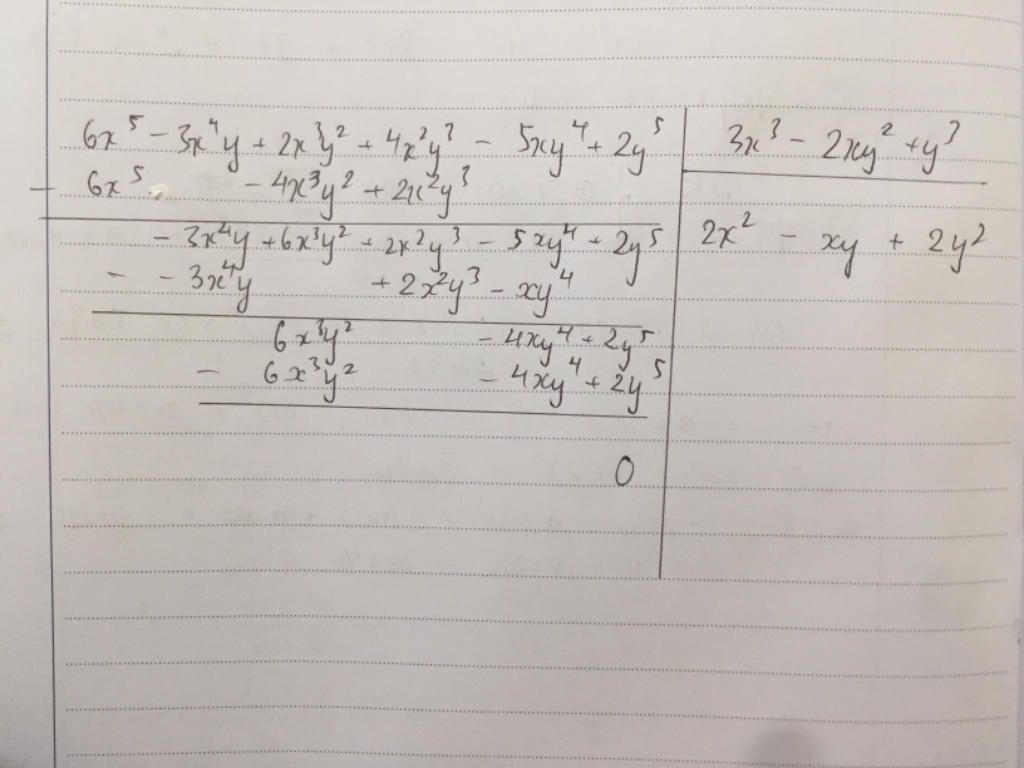 6x⁵ - 3x⁴y + 2x³y² + 4x²y³ - 5xy⁴ + 2y⁵ | 3x³ - 2xy² + y³
- 6x⁵ - 4x³y² + 2x²y³
- 3x⁴y + 6x³y² + 2x²y³ - 5xy⁴ + 2y⁵ | 2x² - xy + 2y²
- - 3x⁴y + 2x²y³ - xy⁴
6x³y² - 4xy⁴ + 2y⁵
- 6x³y² - 4xy⁴ + 2y⁵
0